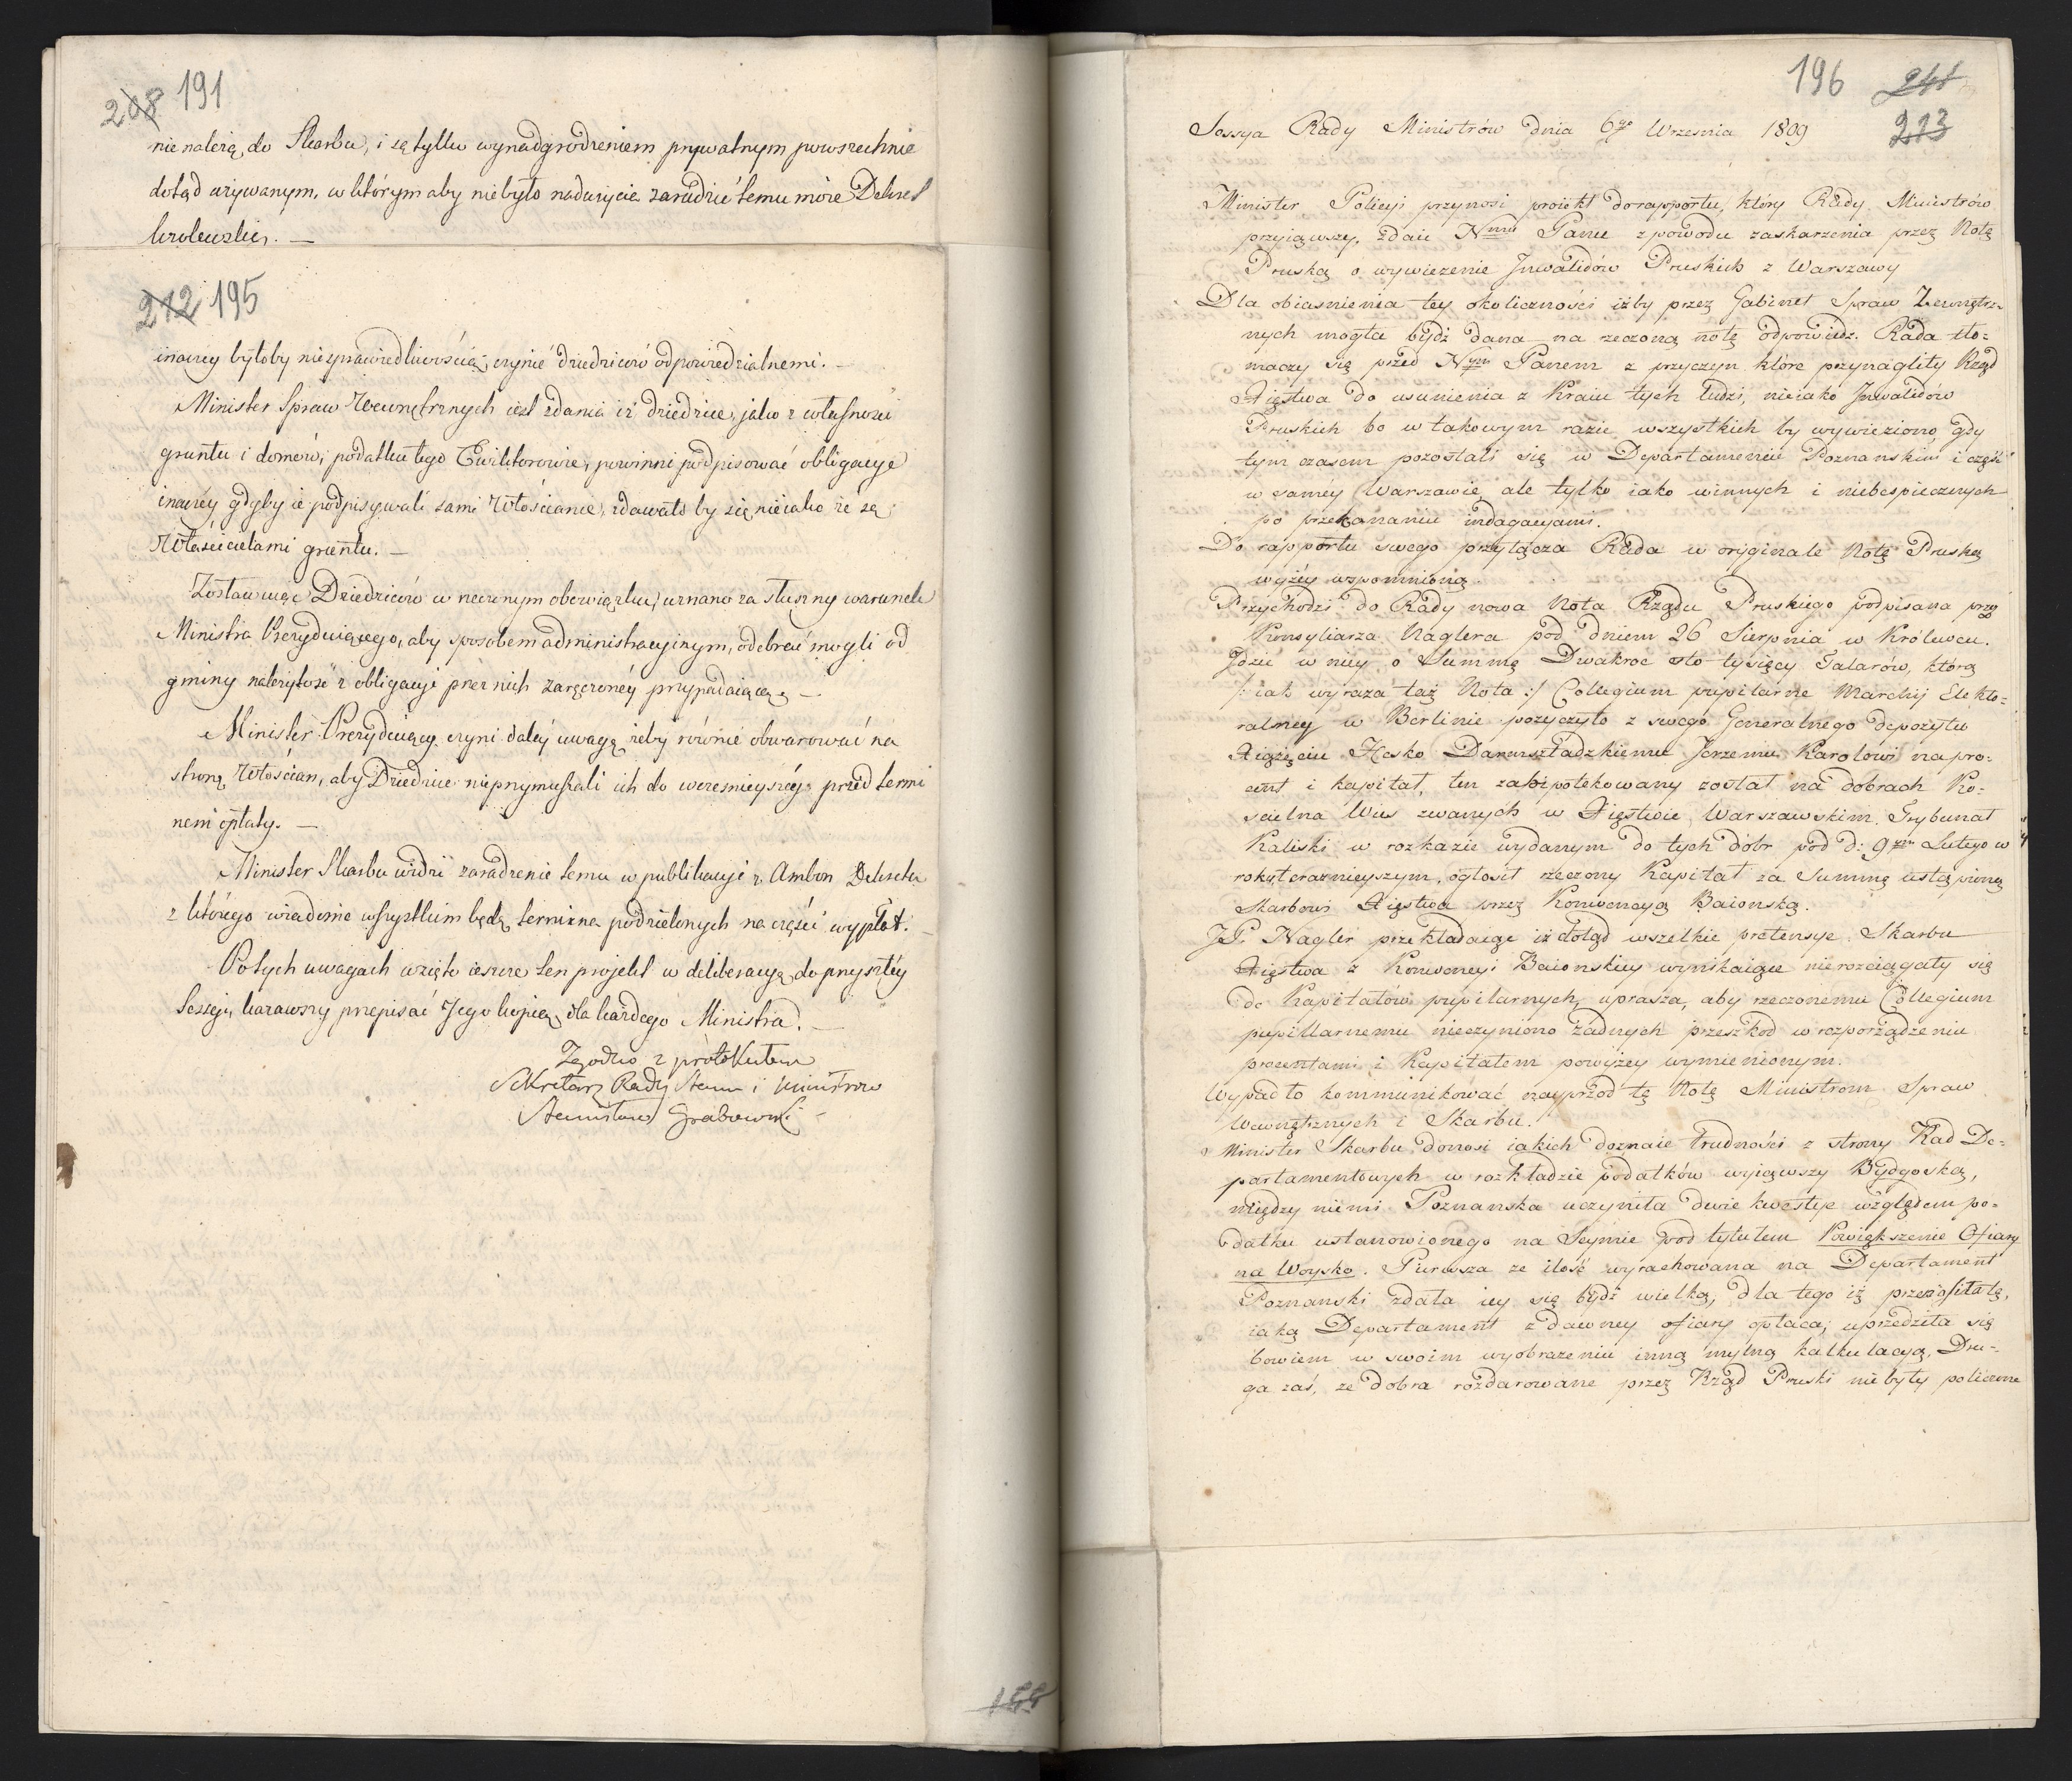 208 191
nie należą do Skarbu, i są tylko wynadgrodzeniem prywatnym powszechnie
dotąd używanym, w którym aby nie było nadużycia zaradzić temu może Dekret
krolewski. —
212 195
inaczey byłoby niesprawiedliwością, czynić dziedziców odpowiedzialnemi. —
Minister Spraw Wewnętrznych iest zdania iż dziedzice, jako z własności
gruntu i domów, podatku tego Exaktorowie, powinni podpisować obligacye
inaczéy gdyby ie podpisywali sami Włościanie, zdawało by się nieiako że są
Właścicielami gruntu. —
Zostawuiąc Dziedziców w rzeczonym obowiązku, uznano za słuszny warunek
Ministra Prezyduiącego, aby sposobem administracyinym, odebrać mogli od
gminy należytość z obligacyi przez nich zaręczonéy przypadaiącą —
Minister Prezyduiący czyni daléy uwagę żeby równie obwarować na
stronę Włościan, aby Dziedzice nieprzymuszali ich do wcześnieyszéy przed termi
nem opłaty. —
Minister Skarbu widzi zaradzenie temu w publikacyi z Ambon Dekretu
z którego wiadome wszystkim będą termina podzielonych na części wypłat. —
Po tych uwagach wzięto ieszcze ten projekt w deliberacyą do przyszłéy
Sessyi, kazawszy przepisać Jego kopią dla każdego Ministra. —
Zgodno z protokułem
Sekretarz Rady Stanu i Ministrow
Stanisław Grabowski
188
196 241
213
Sessya Rady Ministrów dnia 6go Wrzesnia 1809
Minister Policyi przynosi proiekt do rapportu, który Rady Ministrów
przyiąwszy, zdaie Nmu Panu z powodu zaskarzenia przez Notę
Pruską o wywiezenie Inwalidów Pruskich z Warszawy
Dla obiasnienia tey okoliczności iżby przez Gabinet Spraw Zewnętrz-
nych mogła bydź dana na rzeczoną notę odpowiedz. Rada tło-
maczy się przed Nym Panem z przyczyn które przynagliły Rząd
Xięstwa do usunienia z Kraiu tych ludzi, nieiako Inwalidów
Pruskich bo w takowym razie wszystkich by wywieziono, gdy
tym czasem pozostali się w Departamencie Poznanskim i część
w saméy Warszawie, ale tylko iako winnych i niebespiecznych
po przekonaniu indagacyami.
Do rapportu swego przyłącza Rada w oryginale Notę Pruską
wyźéy wspomnioną.
Przychodzi do Rady nowa Nota Rządu Pruskiego podpisana przez
Konsyliarza Naglera pod dniem 26 Sierpnia w Królewcu.
Idzie w niey o Summę Dwakroc sto tysięcy Talarów, którą
/: iak wyraza taż Nota :/ Collegium pupilarne Marchij Elekto-
ralney w Berlinie pozyczyło z swego Generalnego depozytu
Xiążęciu Hesko Darmsztadzkiemu Jerzemu Karolowi na pro-
cent i kapitał, ten zahipotekowany został na dobrach Ko-
scielna Wies zwanych w Xięstwie Warszawskim. Trybunał
Kaliski w rozkazie wydanym do tych dóbr pod d: 9ym Lutego w
roku teraznieyszym, ogłosił rzeczony Kapitał za Summę ustąpioną
Skarbowi Xięstwa przez Konwencyą Baionską.
JP. Nagler przekładaiąc iż dotąd wszelkie pretensye Skarbu
Xięstwa z Konwencyi Baionskiey wynikaiące nierozciągały się
do Kapitałów pupilarnych, uprasza, aby rzeczonemu Collegium
pupillarnemu nieczyniono żadnych przeszkod w rozporządzeniu
procentami i Kapitałem powiżey wymienionym.
Wypadło kommunikować nayprzód tę Notę Ministrom Spraw
Wewnętrznych i Skarbu.
Minister Skarbu donosi iakich doznaie trudności z strony Rad De-
partamentowych w rozkładzie podatków wyiąwszy Bydgoską,
między niemi Poznanska uczyniła dwie kwestye względem po-
datku ustanowionego na Seymie pod tytułem Powiększenie Ofiary
na Woysko. Pierwsza ze ilość wyrachowana na Departament
Poznanski zdała iey się bydź wielką, dla tego iż przenosi tatę,
iaką Departament z dawney ofiary opłaca; uprzedziła się
bowiem w swoim wyobrazeniu inną mylną kalkulacyą, Dru-
ga zaś, ze dobra rozdarowane przez Rząd Pruski nie były policzone